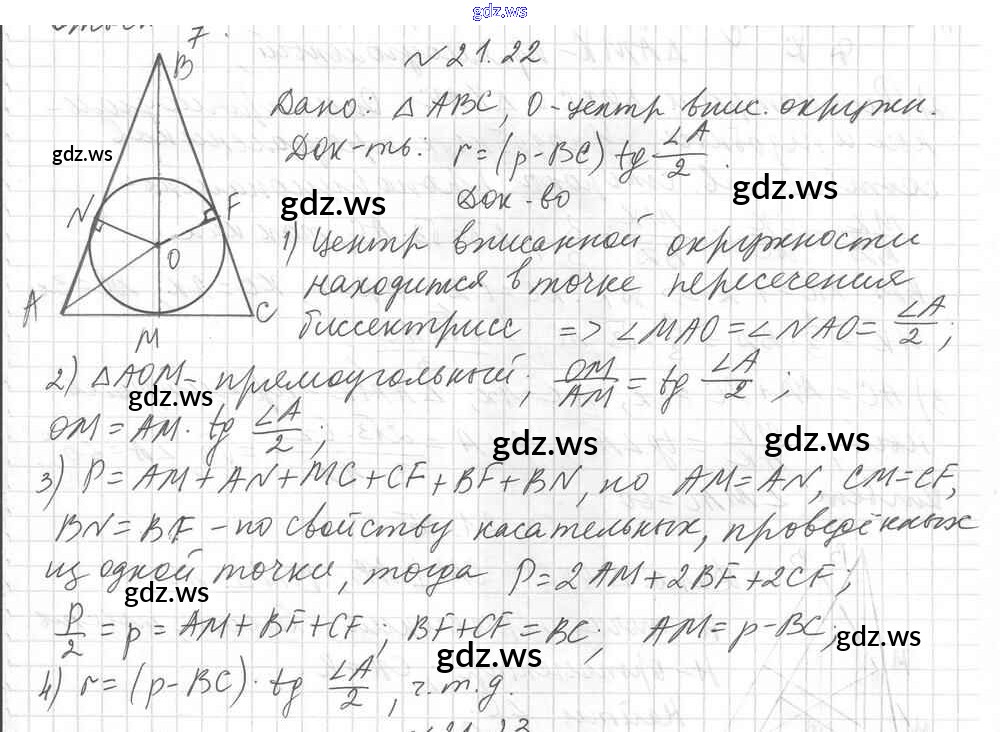 gdz.ws
7.
№21.22
B
Дано: △ABC, O-центр впис. окружн.
gdz.ws
Док-ть: r=(p-BC) tg ∠A/2.
gdz.ws
gdz.ws
Док-во
N
F
1) Центр вписанной окружности
O
находится в точке пересечения
A
C
биссектрисс => ∠MAO=∠NAO= ∠A/2;
M
2) △AOM- прямоугольный; OM/AM = tg ∠A/2;
gdz.ws
OM=AM· tg ∠A/2;
gdz.ws
gdz.ws
3) P=AM+AN+MC+CF+BF+BN, но AM=AN, CM=CF,
BN=BF -по свойству касательных, проведённых
из одной точки, тогда P=2AM+2BF+2CF;
gdz.ws
P/2=p=AM+BF+CF; BF+CF=BC; AM=p-BC;
gdz.ws
gdz.ws
4) r=(p-BC)· tg ∠A/2, ч.т.д.